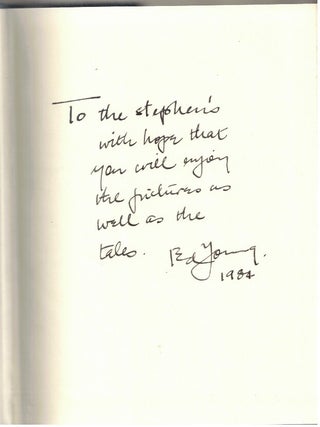 To the stephen's
with hope that
you will enjoy
the pictures as
well as the
tales. Ed Young.
1984